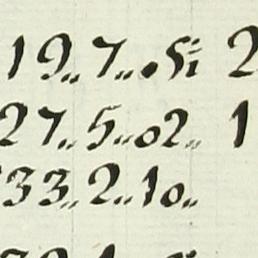 19,, 7,, 05½ 2
27,, 5,, 02,, 1
33,, 2,, 10,,